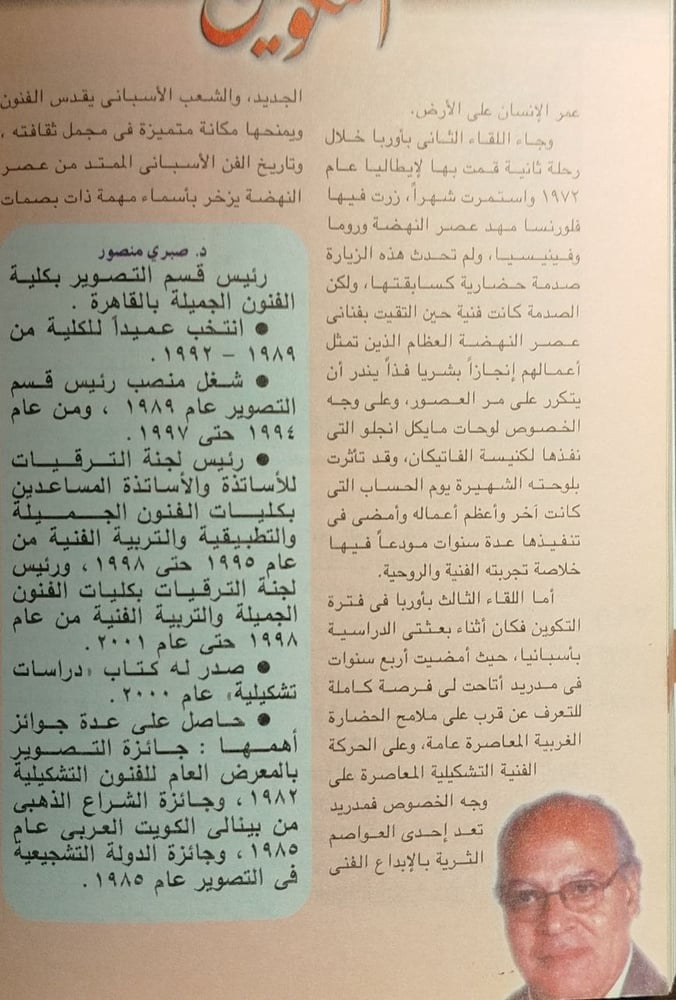 التكوين
عمر الإنسان على الأرض.
وجاء اللقاء الثانى بأوربا خلال
رحلة ثانية قمت بها لإيطاليا عام
١٩٧٢ واستمرت شهراً، زرت فيها
فلورنسا مهد عصر النهضة وروما
وفينيسيا، ولم تحدث هذه الزيارة
صدمة حضارية كسابقتها، ولكن
الصدمة كانت فنية حين التقيت بفنانى
عصر النهضة العظام الذين تمثل
أعمالهم إنجازاً بشريا فذاً يندر أن
يتكرر على مر العصور، وعلى وجه
الخصوص لوحات مايكل انجلو التى
نفذها لكنيسة الفاتيكان، وقد تأثرت
بلوحته الشهيرة يوم الحساب التى
كانت آخر وأعظم أعماله وأمضى فى
تنفيذها عدة سنوات مودعاً فيها
خلاصة تجربته الفنية والروحية.
أما اللقاء الثالث بأوربا فى فترة
التكوين فكان أثناء بعثتى الدراسية
بأسبانيا، حيث أمضيت أربع سنوات
فى مدريد أتاحت لى فرصة كاملة
للتعرف عن قرب على ملامح الحضارة
الغربية المعاصرة عامة، وعلى الحركة
الفنية التشكيلية المعاصرة على
وجه الخصوص فمدريد
تعد إحدى العواصم
الثرية بالإبداع الفنى
الجديد، والشعب الأسبانى يقدس الفنون
ويمنحها مكانة متميزة فى مجمل ثقافته ،
وتاريخ الفن الأسبانى الممتد من عصر
النهضة يزخر بأسماء مهمة ذات بصمات
د. صبري منصور
رئيس قسم التصوير بكلية
الفنون الجميلة بالقاهرة .
● انتخب عميداً للكلية من
١٩٨٩ – ١٩٩٢ .
● شغل منصب رئيس قسم
التصوير عام ١٩٨٩ ، ومن عام
١٩٩٤ حتى ١٩٩٧ .
● رئيس لجنة الترقيات
للأساتذة والأساتذة المساعدين
بكليات الفنون الجميلة
والتطبيقية والتربية الفنية من
عام ١٩٩٥ حتى ١٩٩٨ ، ورئيس
لجنة الترقيات بكليات الفنون
الجميلة والتربية الفنية من عام
١٩٩٨ حتى عام ٢٠٠١ .
● صدر له كتاب «دراسات
تشكيلية» عام ٢٠٠٠ .
● حاصل على عدة جوائز
أهمها : جائزة التصوير
بالمعرض العام للفنون التشكيلية
١٩٨٢ ، وجائزة الشراع الذهبى
من بينالى الكويت العربي عام
١٩٨٥ ، وجائزة الدولة التشجيعية
فى التصوير عام ١٩٨٥ .